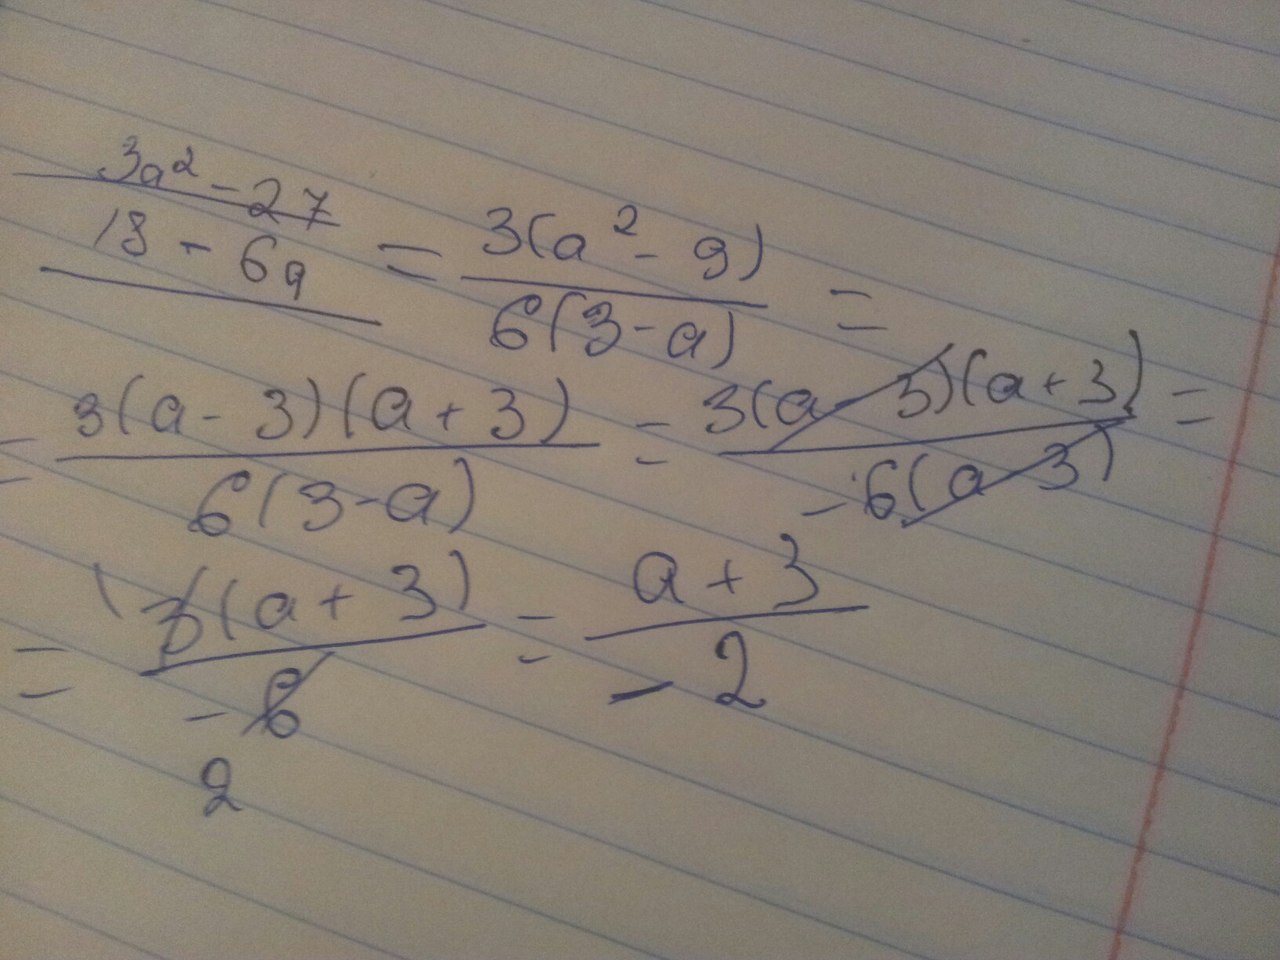 3a² - 27
18 - 6a
= 3(a² - 9)
6(3 - a)
=
= 3(a - 3)(a + 3)
6(3 - a)
= 3(a - 3)(a + 3)
- 6(a - 3)
=
= 1 3(a + 3)
- 6
2
= a + 3
- 2